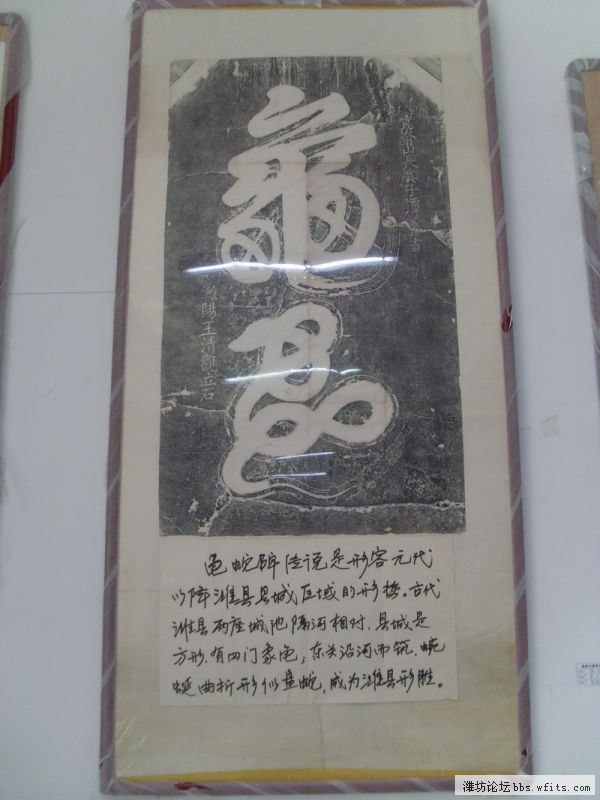 龜蛇
長春子譚
書
濰陽玉清觀立石
龟蛇碑传说是形容元代
以降潍县县城区域的形势。古代
潍县两座城池隔河相对,县城是
方形,有四门象龟;东关沿河而筑,蜿
蜒曲折形似盘蛇,成为潍县形胜。
潍坊论坛bbs.wfits.com